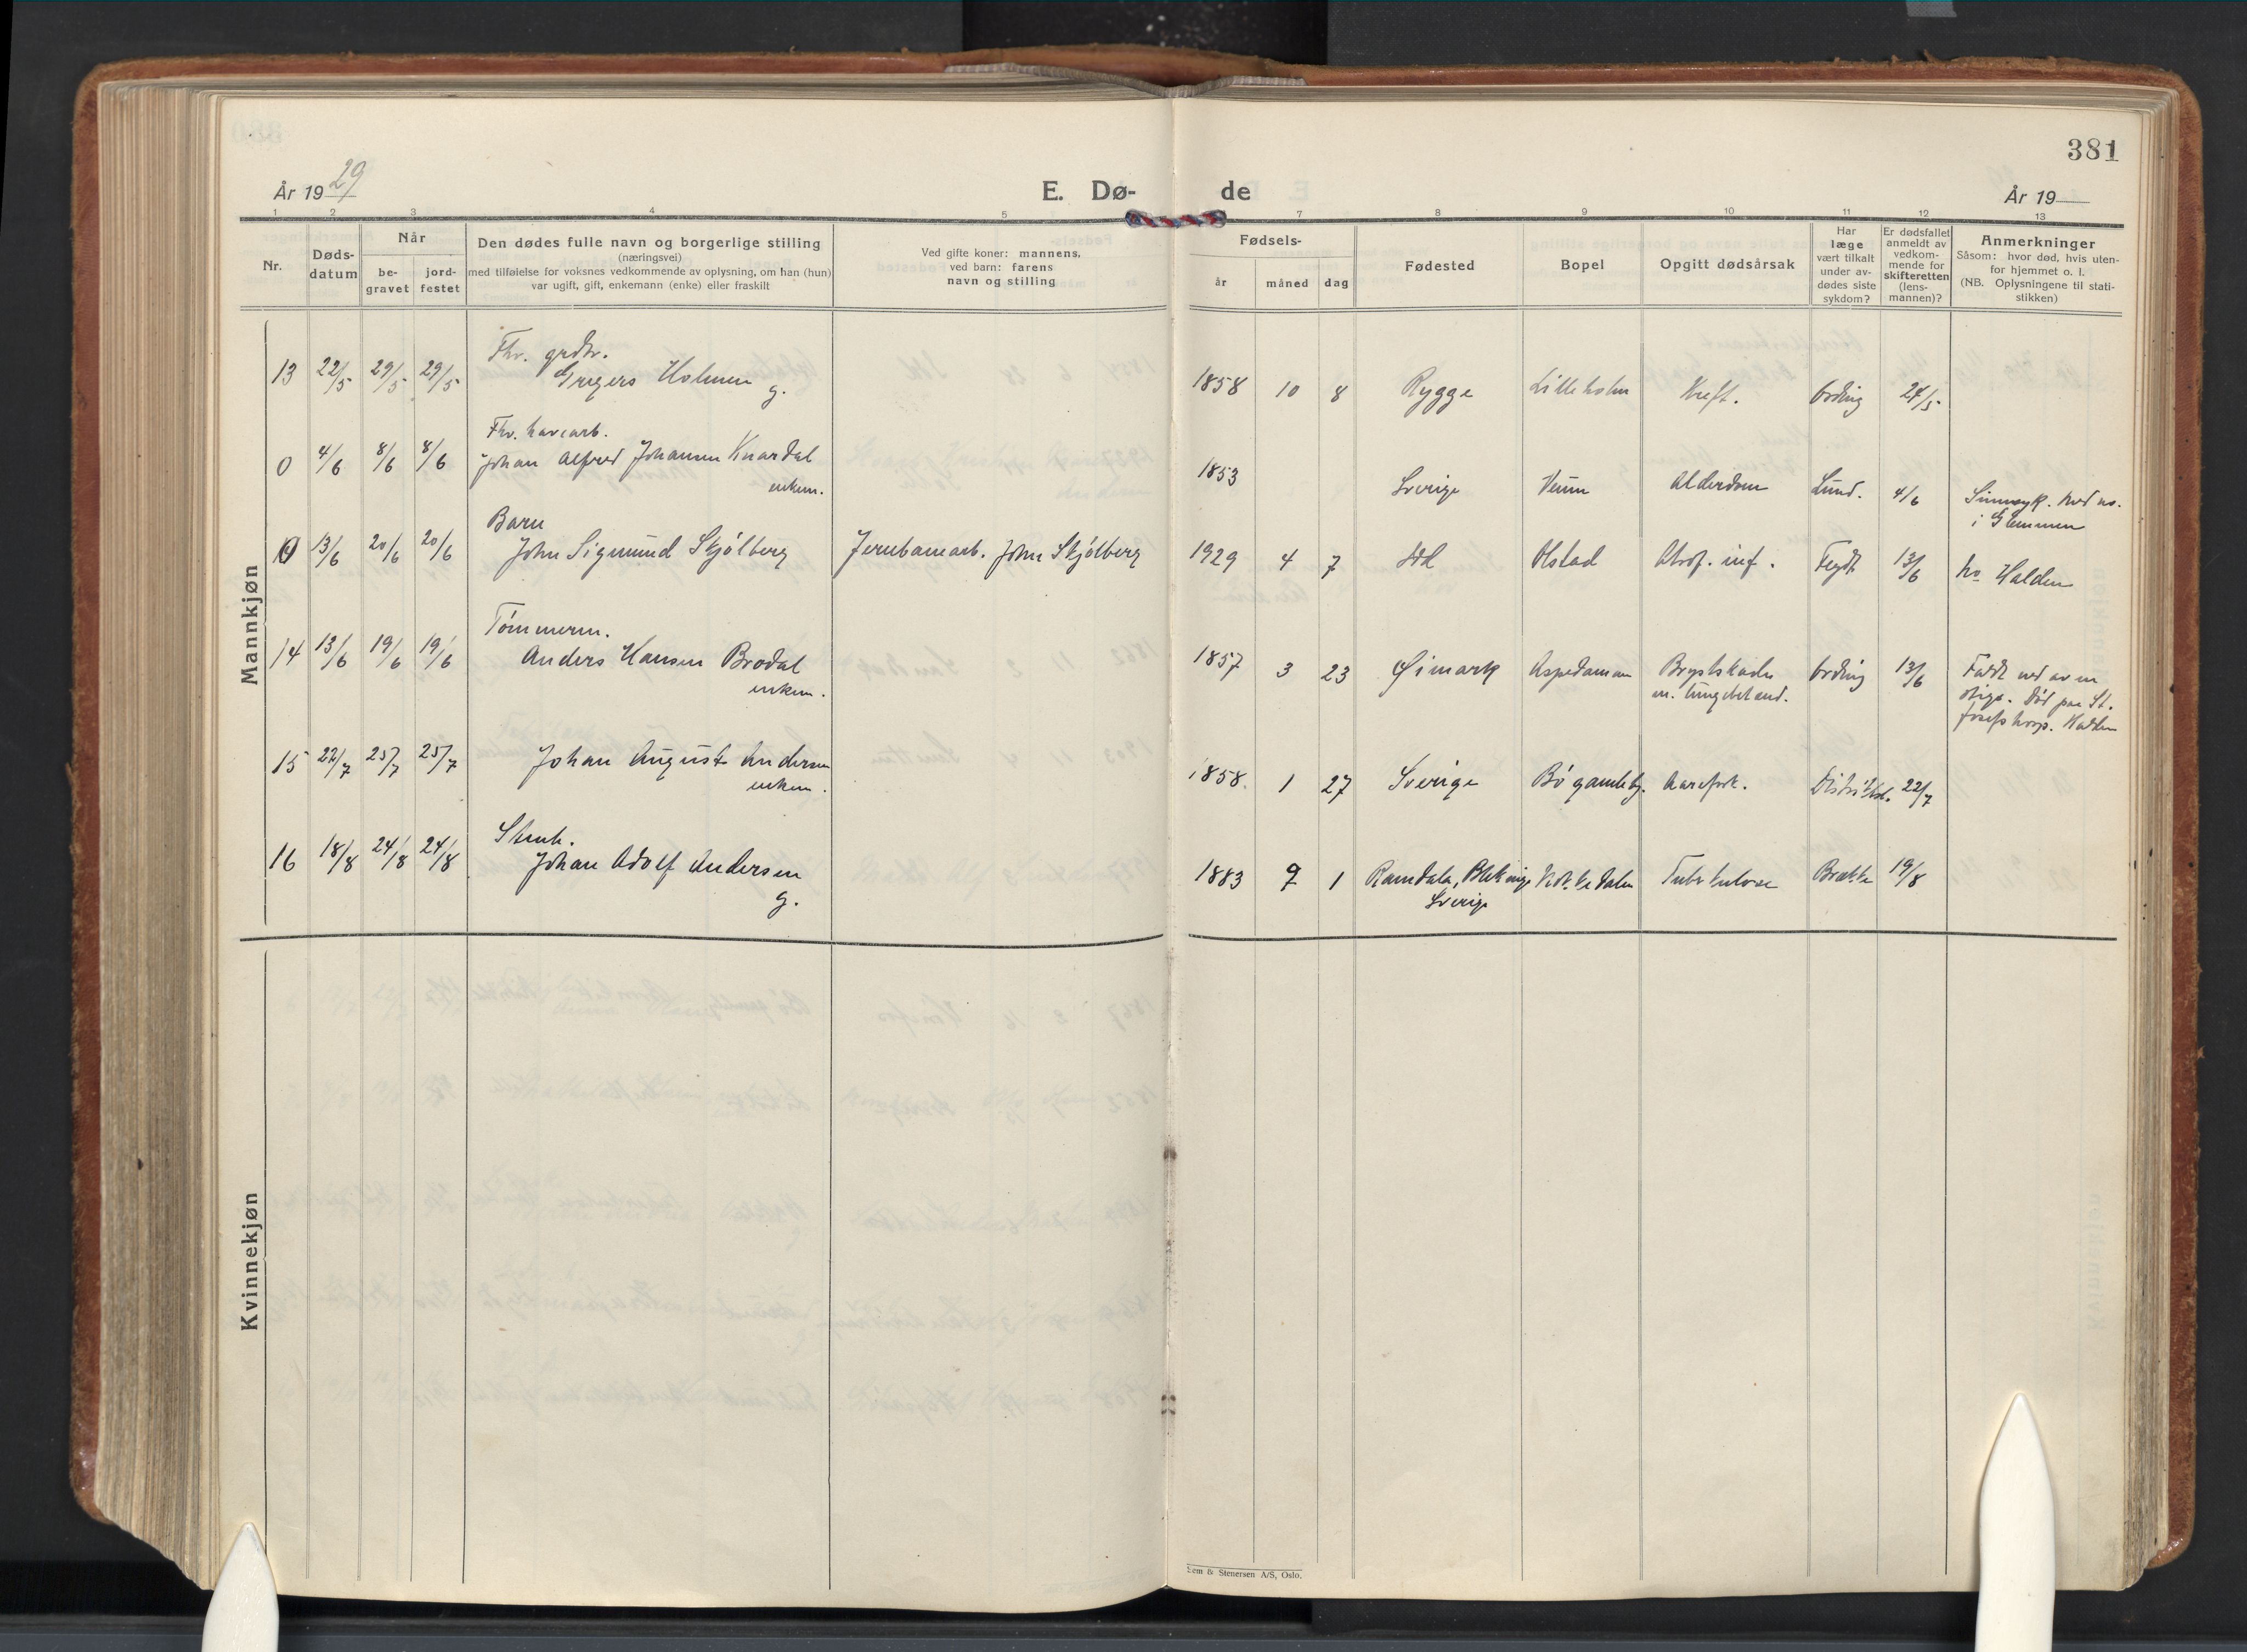 381
År 1929
E. Dø-
de
År 19
1 2 3 4 5 7 8 9 10 11 12 13
Nr.
Døds-
datum
Når
be-
gravet
jord-
festet
Den dødes fulle navn og borgerlige stilling
(næringsvei)
med tilføielse for voksnes vedkommende av oplysning, om han (hun)
var ugift, gift, enkemann (enke) eller fraskilt
Ved gifte koner: mannens,
ved barn: farens
navn og stilling
Fødsels-
år
måned
dag
Fødested
Bopel
Opgitt dødsårsak
Har
læge
vært tilkalt
under av-
dødes siste
sykdom?
Er dødsfallet
anmeldt av
vedkom-
mende for
skifteretten
(lens-
mannen)?
Anmerkninger
Såsom: hvor død, hvis uten-
for hjemmet o. l.
(NB. Oplysningene til stati-
stikken)
Mannkjøn
Fhv. grdbr.
13 22/5 29/5 29/5 Gregers Holmen g. 1858 10 8 Rygge Lilleholm Kreft. Ording 24/5
Fhv. havearb.
0 4/6 8/6 8/6 Johan Alfred Johansen Knardal 1853 Sverige Veum Alderdom Lund. 4/6
enkem.
i Glemmen
Barn
0 13/6 20/6 20/6 John Sigmund Skjølberg Jernbanearb. John Skjølberg 1929 4 7 Idd Olstad Atrof. inf. 13/6 Halden
Tømmerm.
14 13/6 19/6 19/6 Anders Hansen Brodal 1857 3 23 Øimark Aspedammen Brystskade Ording 13/6
enkem. m. lungebetænd.
stige. Død paa St.
Josefs hosp. Halden
15 22/7 25/7 25/7 Johan August Andersen 1858 1 27 Sverige Bø gamleby. Aarefork. 22/7
enkem.
Stenh.
16 18/8 24/8 24/8 Johan Adolf Andersen 1883 9 1 Ramdala, Blekinge Tuberkulose Brække 19/8
g. Sverige
Kvinnekjøn
Sem & Stenersen A/S, Oslo.